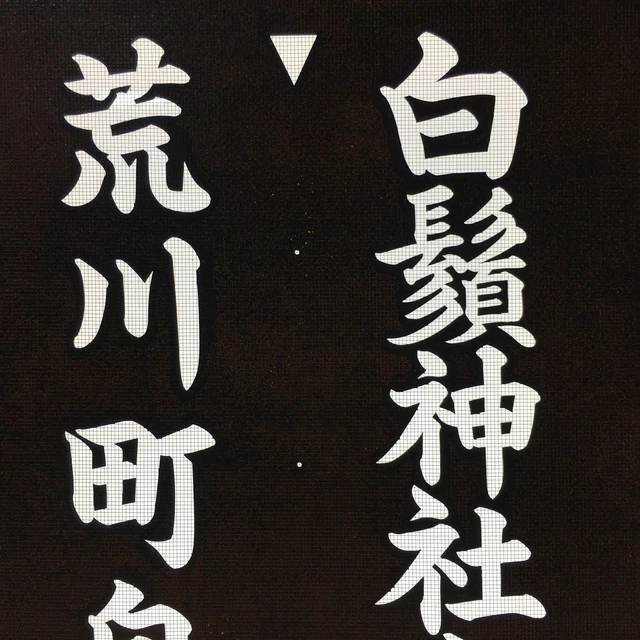 白鬚神社
荒川町